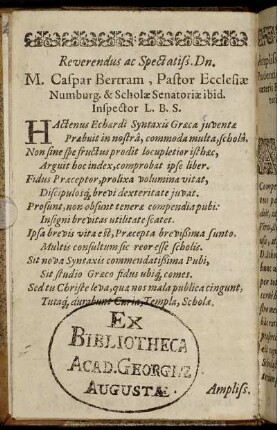 Reverendus ac Spectatiss. Dn.
M. Caspar Bertram, Pastor Ecclesiæ
Numburg. & Scholæ Senatoriæ ibid.
Inspector L. B. S.
HActenus Echardi Syntaxis Græca juventæ
Præbuit in nostrâ, commoda multa, scholâ.
Non sine spe fructus prodit locupletior isthæc,
Arguit hoc index, comprobat ipse liber.
Fidus Præceptor, prolixa volumina vitat,
Discipulosq; brevi dexteritate juvat.
Prosunt, non obsunt teneræ compendia pubi:
Insigni brevitas utilitate scatet.
Ipsa brevis vita est, Præcepta brevissima sunto.
Multis consultum sic reor esse scholis.
Sit nova Syntaxis commendatissima Pubi,
Sit studio Græco fidus ubiq; comes.
Sed tu Christe leva, quæ nos mala publica tingunt,
Tutaq; durabunt Curia, Templa, Schola.
EX
BIBLIOTHECA
ACAD. GEORGIÆ
AUGUSTÆ
Ampliss.